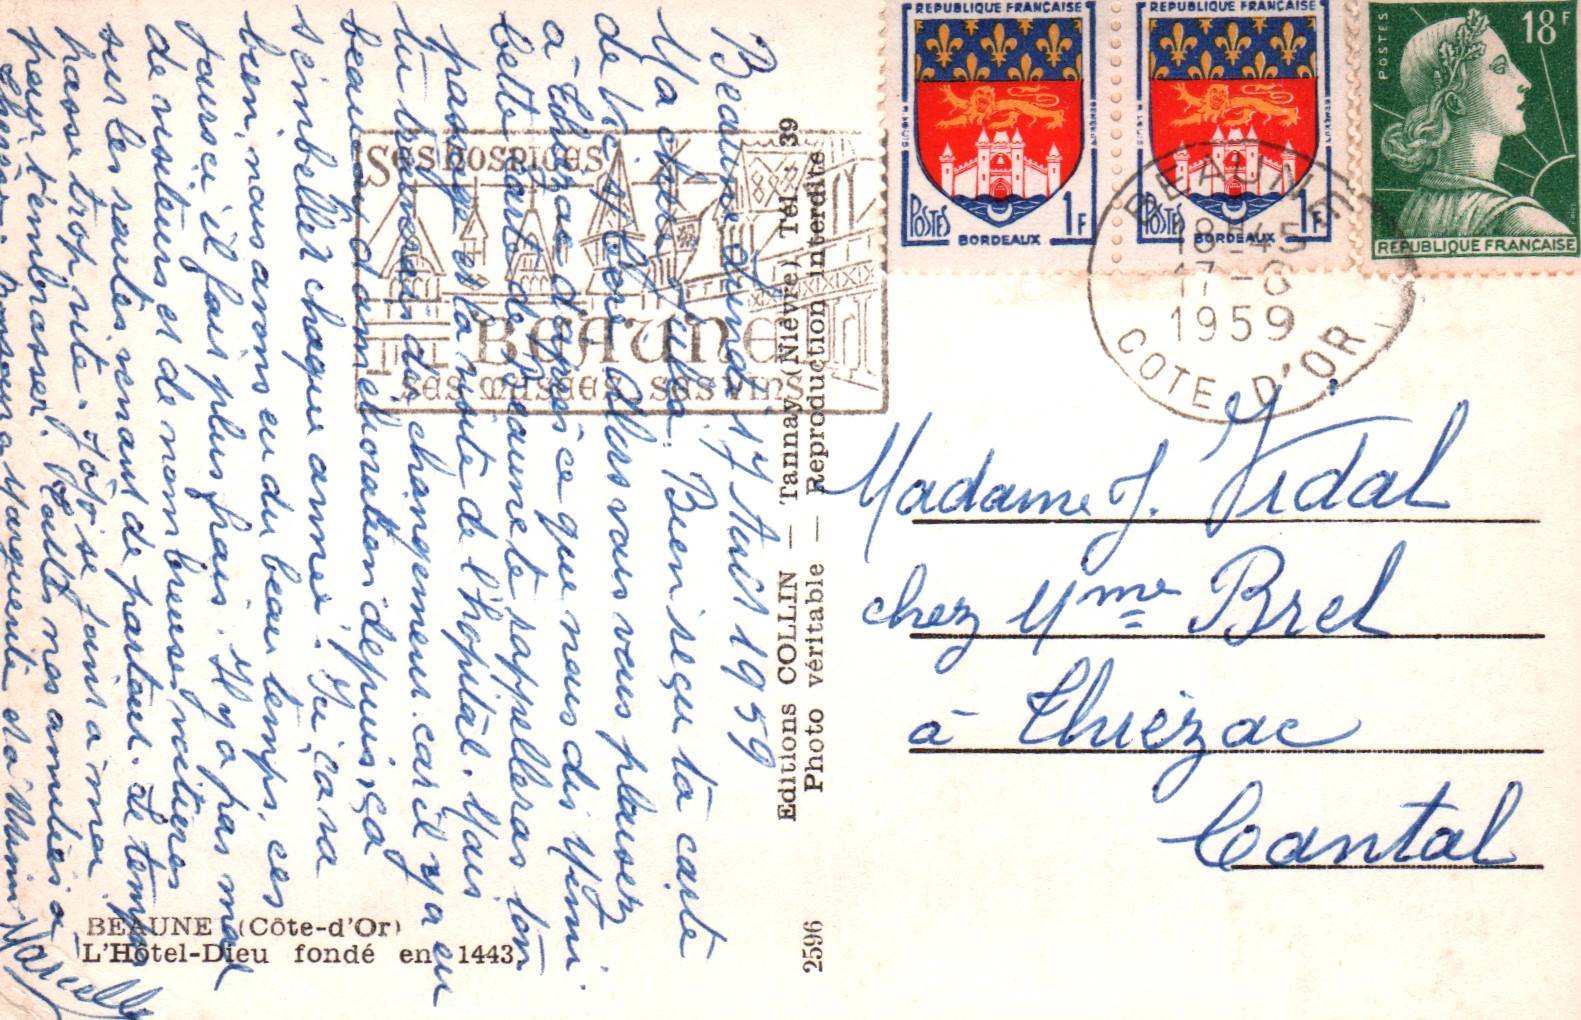 REPUBLIQUE FRANÇAISE
POSTES 1F
BORDEAUX
REPUBLIQUE FRANÇAISE
POSTES 1F
BORDEAUX
POSTES 18F
REPUBLIQUE FRANÇAISE
SES HOSPICES
BEAUNE
SES MUSEES. SES VINS
BEAUNE
18-45
17-8
1959
COTE D'OR
Beaune lundi 17 Août 1959
Ma chère Julia. Bien reçu ta carte
de Vic s/ Cère. Alors vous vous plaisez
à Thiézac d'après ce que nous dis Mimi.
Cette carte de Beaune te rappelleras ton
passage et ta visite de l'hopital. Mais
tu trouverais des changement car il y a eu
beaucoup d'amélioration depuis, ça
s'embellit chaque année. Ici ça va
bien, nous avons eu du beau temps, ces
jours ci il fais plus frais. Il y a pas mal
de visiteurs et de nombreuses voitures
sur les routes venant de partout. Le temps
passe trop vite. Jojo se joins a moi
pour t'embrasser. Toutes nos amitiés a
Marguerite et a Mimi
Marcelle
Madame J. Vidal
chez Mme Brel
à Thiézac
Cantal
Editions COLLIN — Tannay (Nièvre) Tél. 39
Photo véritable — Reproduction interdite
2596
BEAUNE (Côte-d'Or)
L'Hôtel-Dieu fondé en 1443.